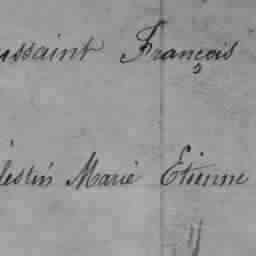 ussaint François
lestin Marie Etienne